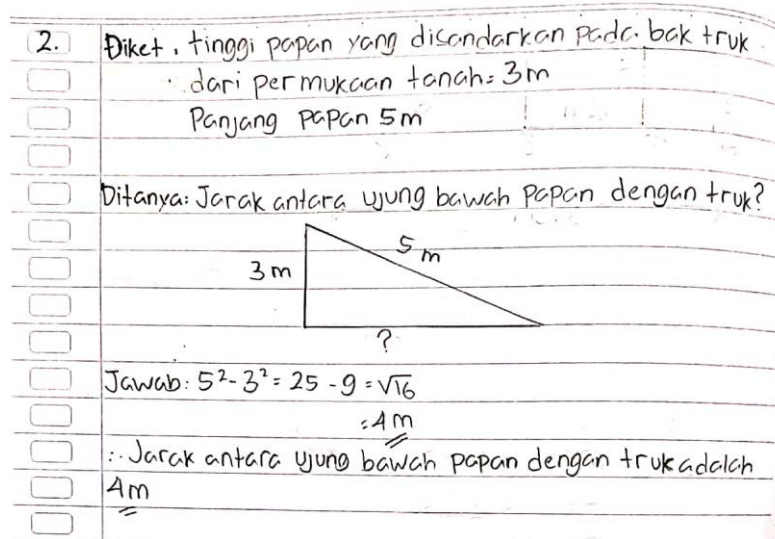 2. Diket, tinggi papan yang disandarkan pada bak truk
dari permukaan tanah = 3m
Panjang papan 5m
Ditanya: Jarak antara ujung bawah papan dengan truk?
5 m
3 m
?
Jawab: 5² - 3² = 25 - 9 = √16
= 4m
∴ Jarak antara ujung bawah papan dengan truk adalah
4m